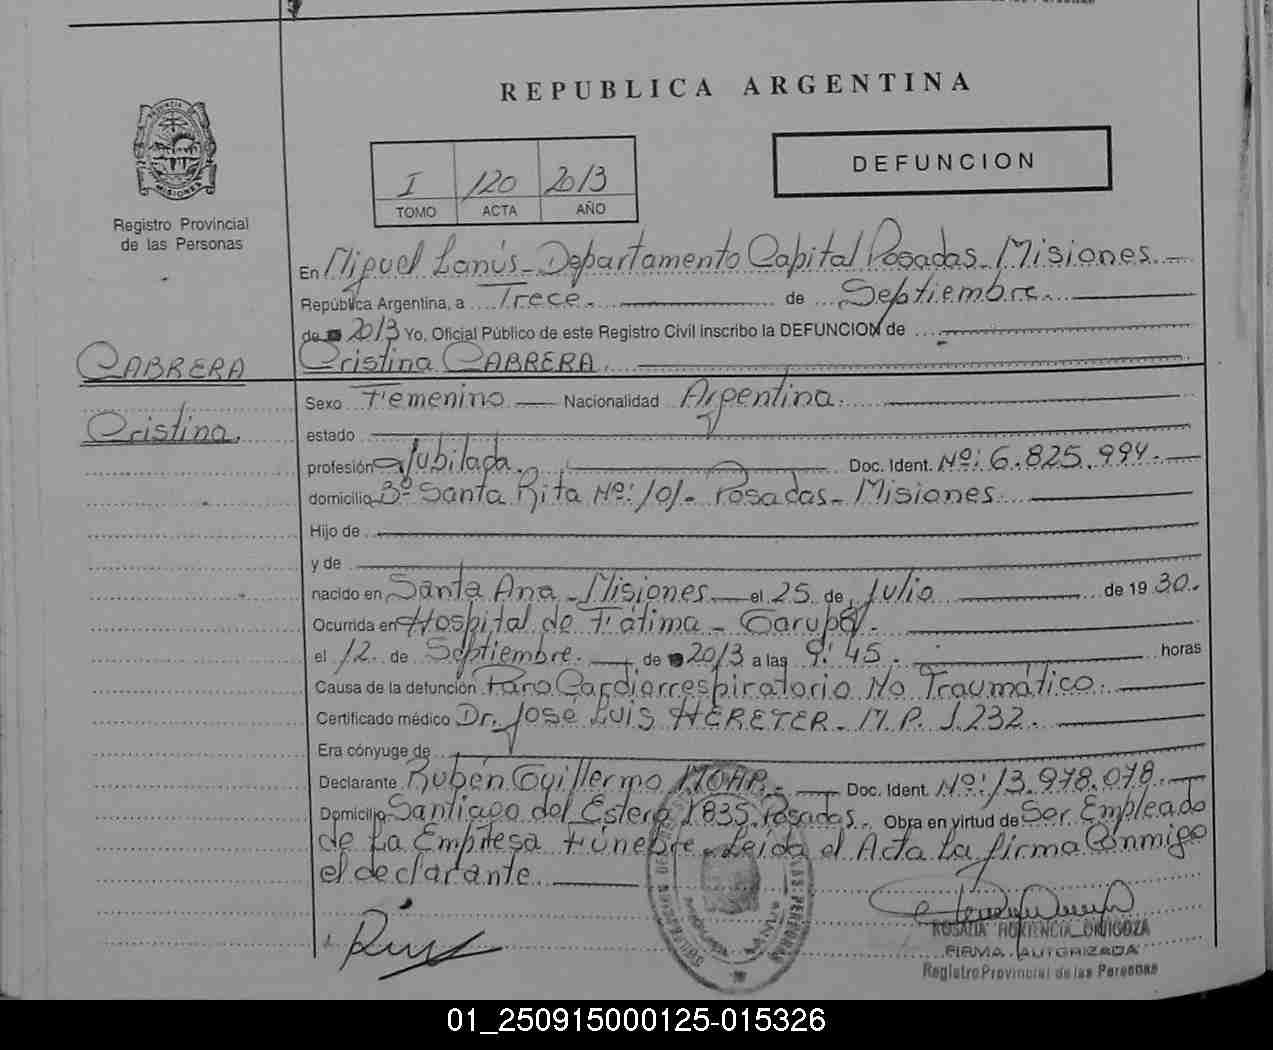 REPUBLICA ARGENTINA
DEFUNCION
I 120 2013
TOMO ACTA AÑO
PROVINCIA DE MISIONES
Registro Provincial
de las Personas
En Miguel Lanús - Departamento Capital Posadas - Misiones
República Argentina, a Trece de Septiembre
de 2013 Yo, Oficial Público de este Registro Civil inscribo la DEFUNCION de
CABRERA
Cristina CABRERA
Sexo Femenino Nacionalidad Argentina
Cristina
estado
profesión Jubilada. Doc. Ident. Nº: 6.825.994.
domicilio Bº Santa Rita Nº: 101 - Posadas - Misiones
Hijo de
y de
nacido en Santa Ana - Misiones el 25 de Julio de 1930.
Ocurrida en Hospital de Fátima - Garupá.
el 12 de Septiembre de 2013 a las 9:45 horas
Causa de la defunción Paro Cardiorrespiratorio No Traumático.
Certificado médico Dr. José Luis HERETER - M.P. 1.232.
Era cónyuge de
Declarante Rubén Guillermo Doc. Ident. Nº: 13.978.078.
Domicilio Santiago del Estero 1835 Posadas. Obra en virtud de Ser Empleado
de La Empresa Fúnebre - Leída el Acta La firma Conmigo
el declarante
ROSALIA HORTENCIA
FIRMA AUTORIZADA
Registro Provincial de las Personas
01_250915000125-015326